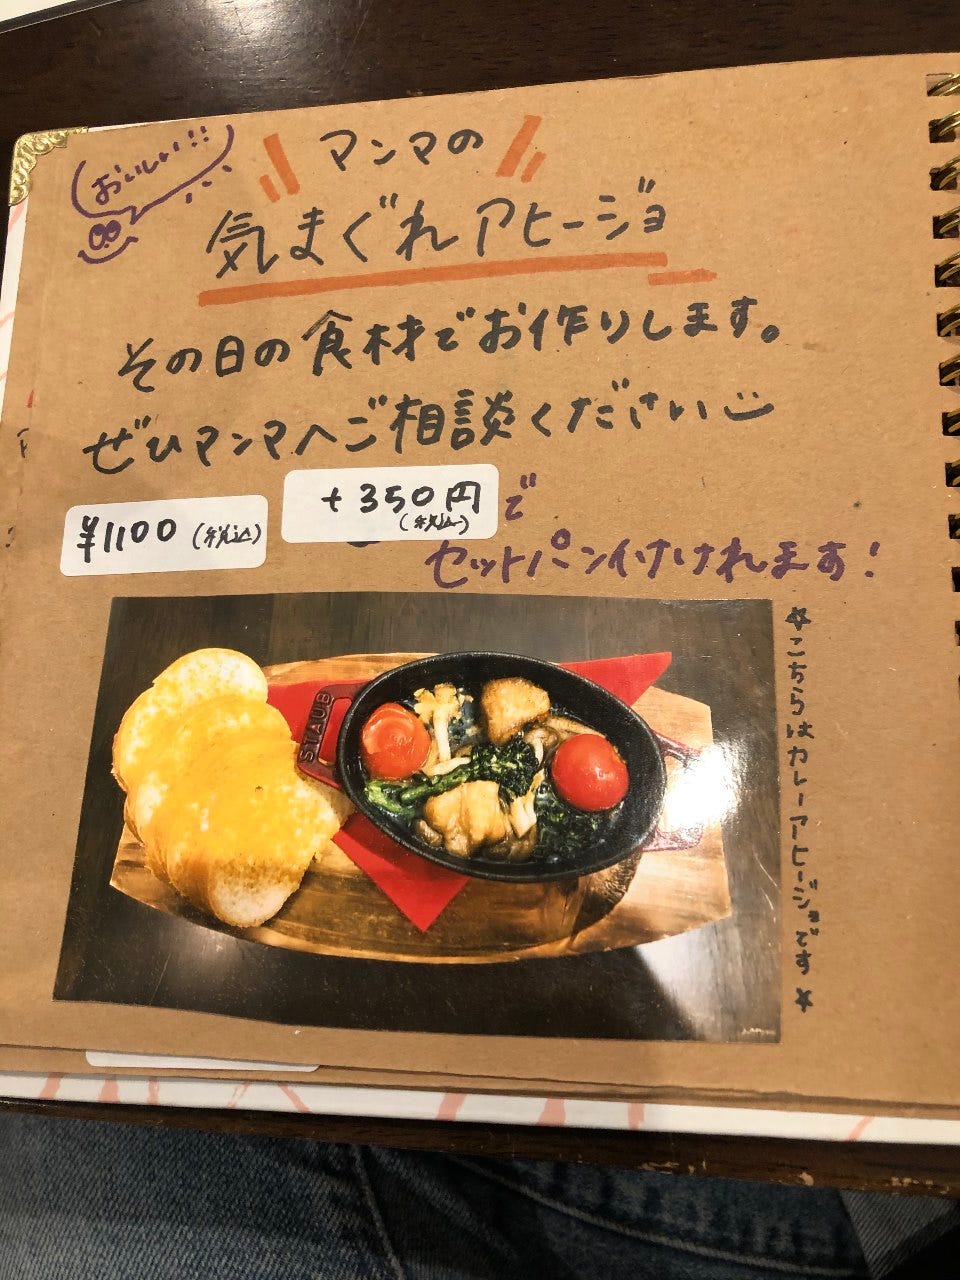 おいしい!!
マンマの
気まぐれアヒージョ
その日の食材でお作りします。
ぜひマンマへご相談ください
¥1100 (税込)
+350円
(税込)
で
セットパン付けれます!
STAUB
☆こちらはカレーアヒージョです☆